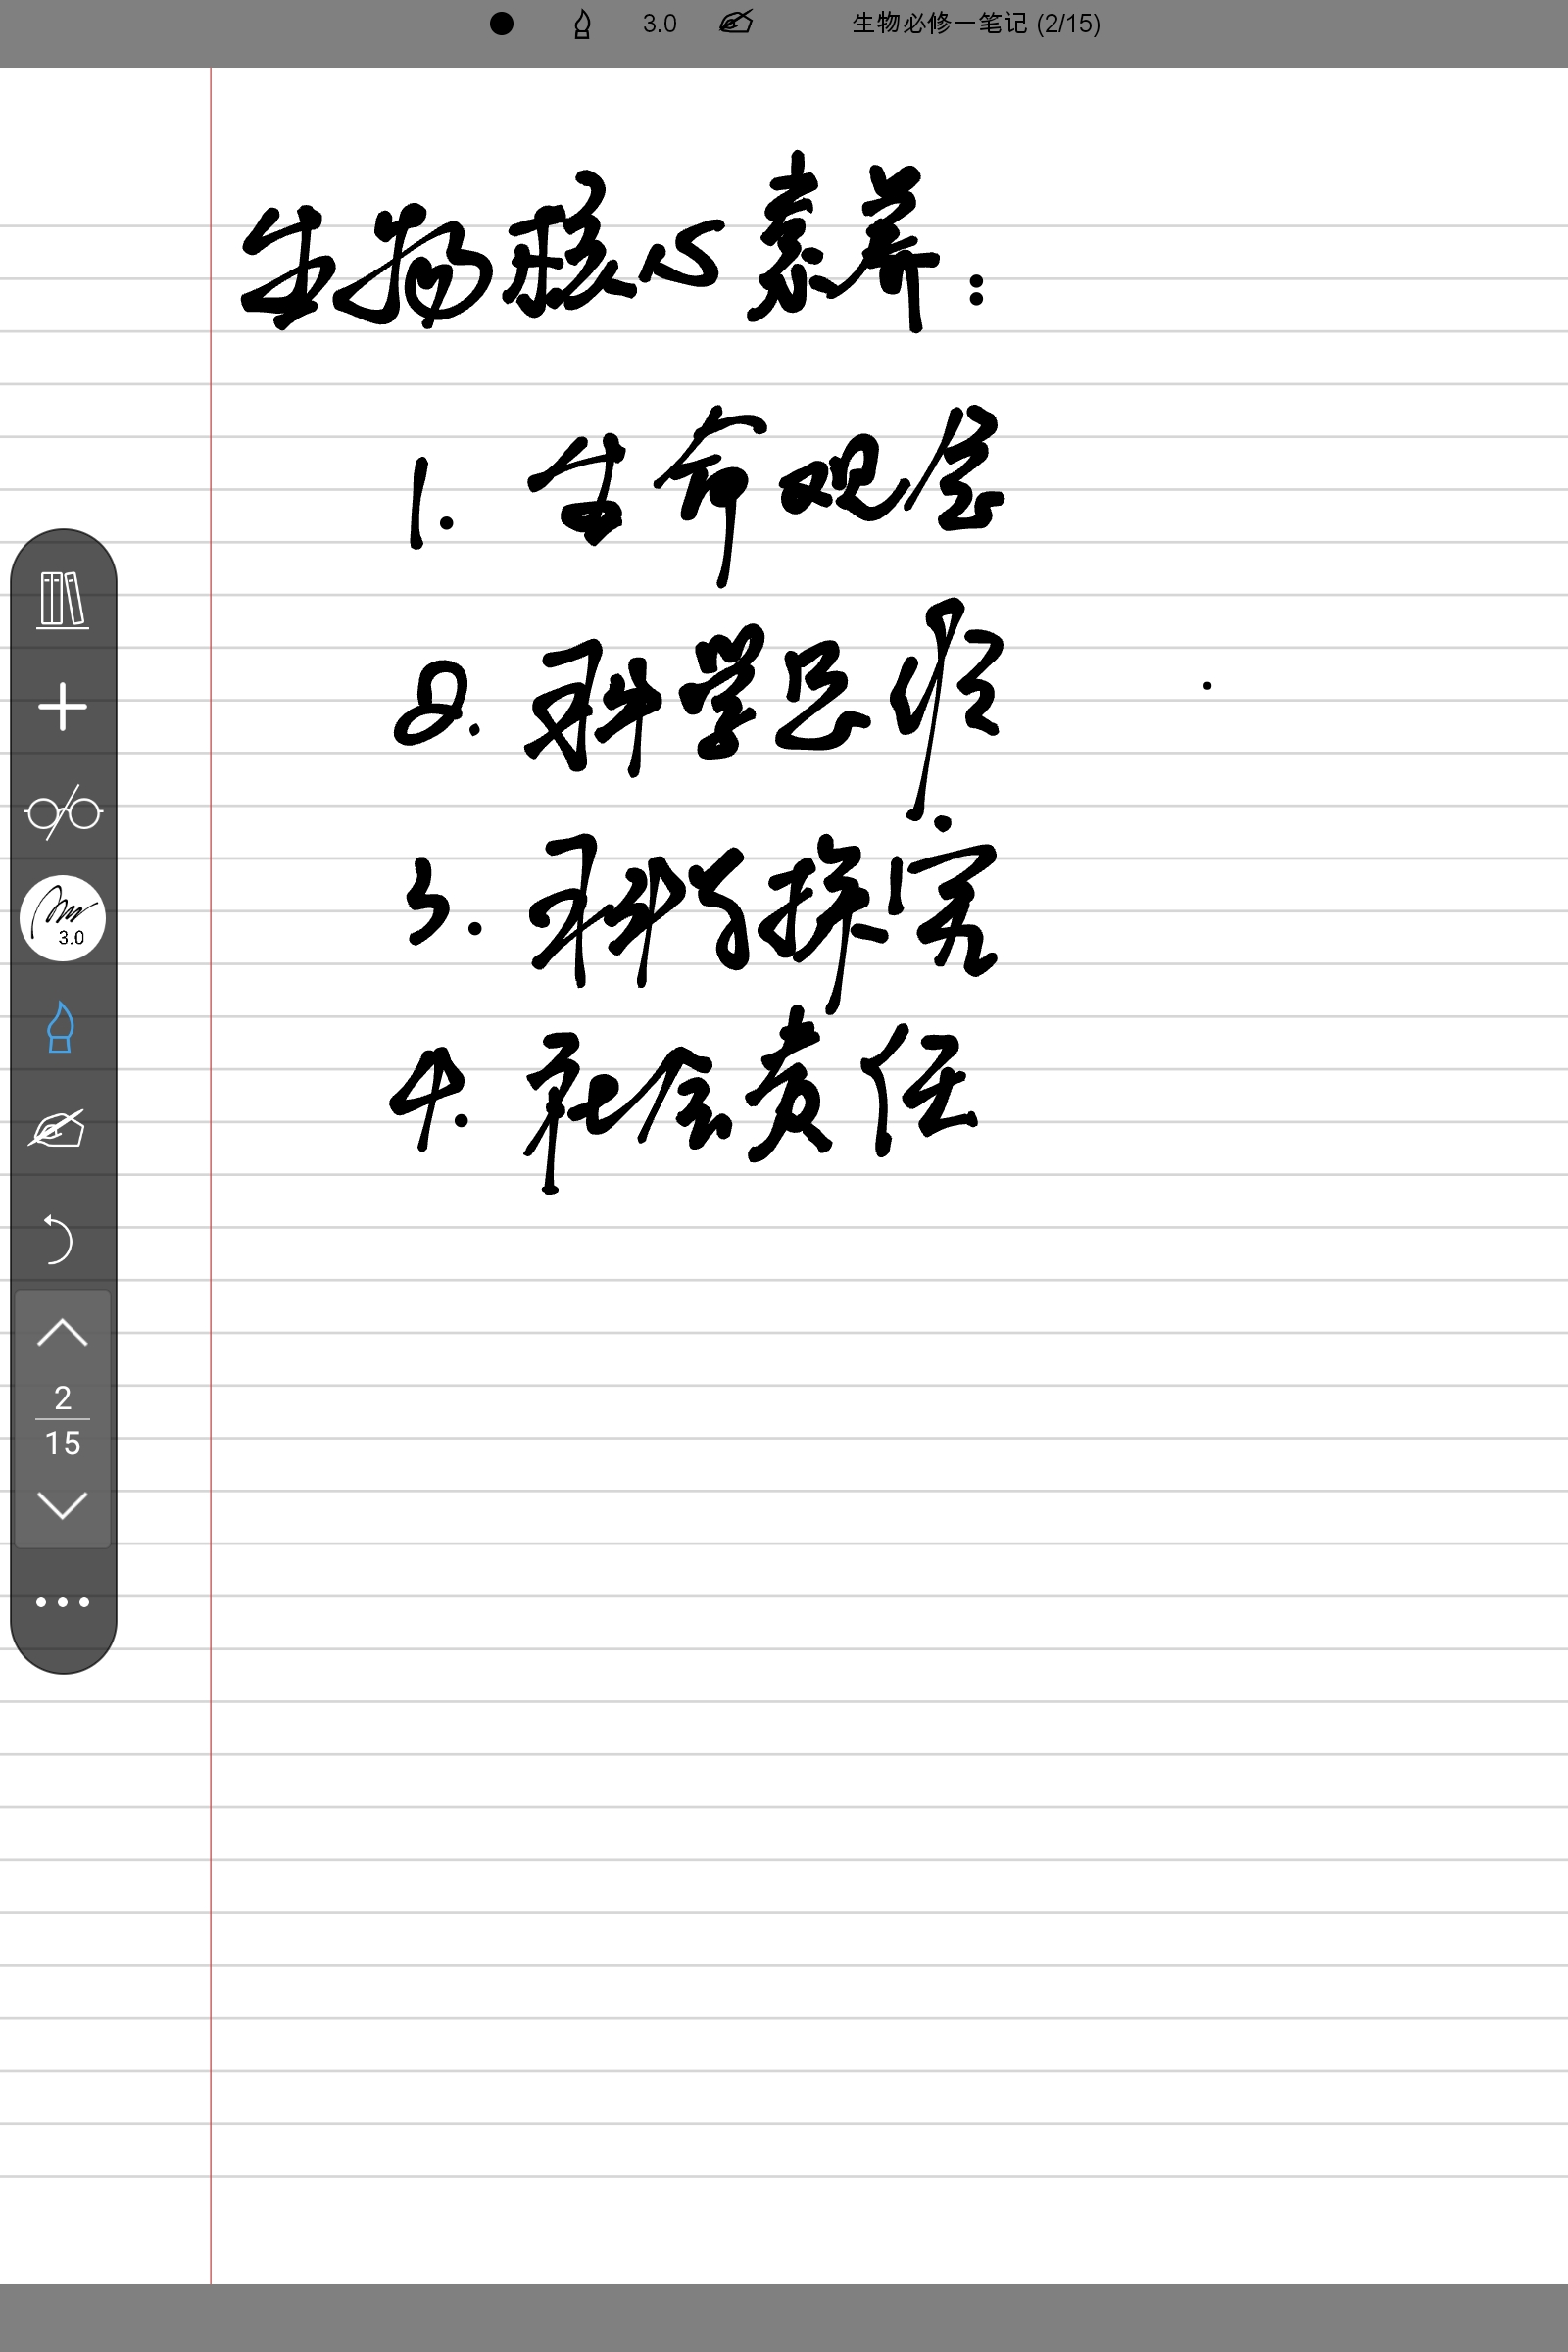 3.0 生物必修一笔记 (2/15)
生物核心素养:
1. 生命观念
2. 科学思维
3. 科学探究
3.0
4. 社会责任
2
15